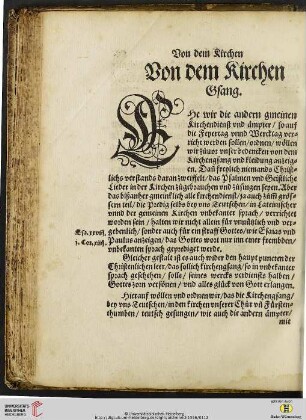 Von dem Kirchen
Von dem Kirchen
Gsang.
EHe wir die andern gmeinen
Kirchendienst vnd ämpter / so auff
die Feyertag vnnd Wercktag ver=
richt werden sollen / ordnen / wöllen
wir zůuor vnser bedencken von dem
Kirchengsang vnd kleidung anzeig=
en. Dañ freylich niemands Christ=
lichs verstands daran zweyffelt / das Psalmen vnd Geistliche
Lieder in der Kirchen zůgebrauchen vnd zůsingen seyen. Aber
das bißanher gmeinklich alle kirchendienst / ja auch häuffi grös=
sern teil / die Predig selbs bey vns Teutschen / in Lateinischer
vnnd der gemeinen Kirchen vnbekanter sprach / verrichtet
worden sein / halten wir nicht allein für vnnützlich vnd ver=
Esa. xxviij. gebenlich / sonder auch für ein straff Gottes / wie Esaias vnd
j. Cor. xiiij. Paulus anzeigen / das Gottes wort nur inn einer frembden /
vnbekanten sprach geprediget werde.
Gleicher gestalt ist es auch wider den haupt puncten der
Christenlichen leer / das sollich kirchengsang / so in vnbekanter
sprach geschehen / solle / seines wercks verdienst halben /
Gottes zorn versönen / vnd alles glück von Gott erlangen.
Hierauf wöllen vnd ordnen wir / das die Kirchengsang /
bey vns Teutschen / in den kirchen vnserer Chur vñ Fürsten=
thumben / teutsch gesungen / wie auch die andern ämpter /
mit